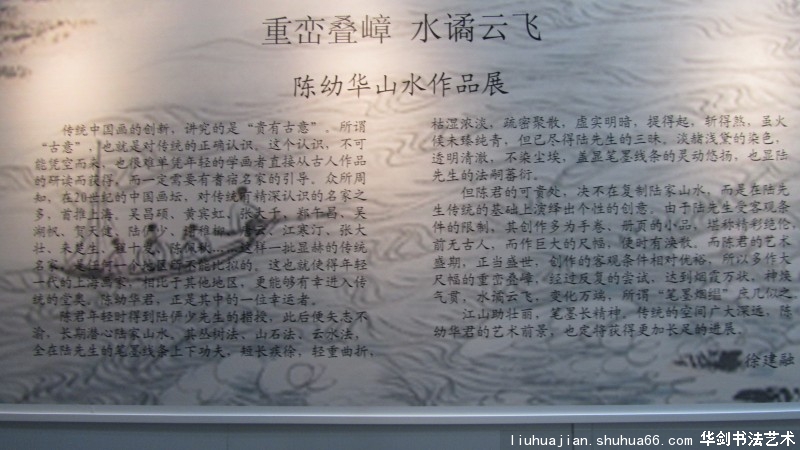 重峦叠嶂 水谲云飞
陈幼华山水作品展
传统中国画的创新，讲究的是“贵有古意”。所谓
“古意”，也就是对传统的正确认识。这个认识，不可
能凭空而来，也很难单凭年轻的学画者直接从古人作品
的研读而获得，而一定需要有耆宿名家的引导。众所周
知，在20世纪的中国画坛，对传统有精深认识的名家之
多，首推上海，吴昌硕、黄宾虹、张大千、郑午昌、吴
湖帆、贺天健、陆俨少、谢稚柳、云、江寒汀、张大
壮、朱梦庐、唐云、陈佩秋，这样一批显赫的传统
名家，是任何一个地区所不能比拟的。这也就使得年轻
一代的上海画家，相比于其他地区，更能够有幸进入传
统的堂奥。陈幼华君，正是其中的一位幸运者。
陈君年轻时得到陆俨少先生的相授，此后便矢志不
渝，长期潜心陆家山水，其丛树法、山石法、云水法，
全在陆先生的笔墨线条上下功夫，短长疾徐，轻重曲折，
枯湿浓淡，疏密聚散，虚实明暗，提得起，斩得熟，虽火
候未臻纯青，但已尽得陆先生的三昧。淡赭浅黛的染色，
透明清澈，不染尘埃，盖显笔墨线条的灵动悠扬，也显陆
先生的法嗣蕃衍。
但陈君的可贵处，决不在复制陆家山水，而是在陆先
生传统的基础上演绎出个性的创意。由于陆先生受客观条
件的限制，其创作多为手卷、册页的小品，堪称精彩绝伦，
前无古人，而作巨大的尺幅，便时有涣散。而陈君的艺术
盛期，正当盛世，创作的客观条件相对优裕，所以多作大
尺幅的重峦叠嶂，经过反复的尝试，达到烟霞万状，神焕
气贯，水谲云飞，变化万端，所谓“笔墨烟煴”庶几似之。
江山助壮丽，笔墨长精神。传统的空间广大深远，陈
幼华君的艺术前景，也定将获得更加长足的进展。
徐建融
liuhuajian.shuhua66.com 华剑书法艺术